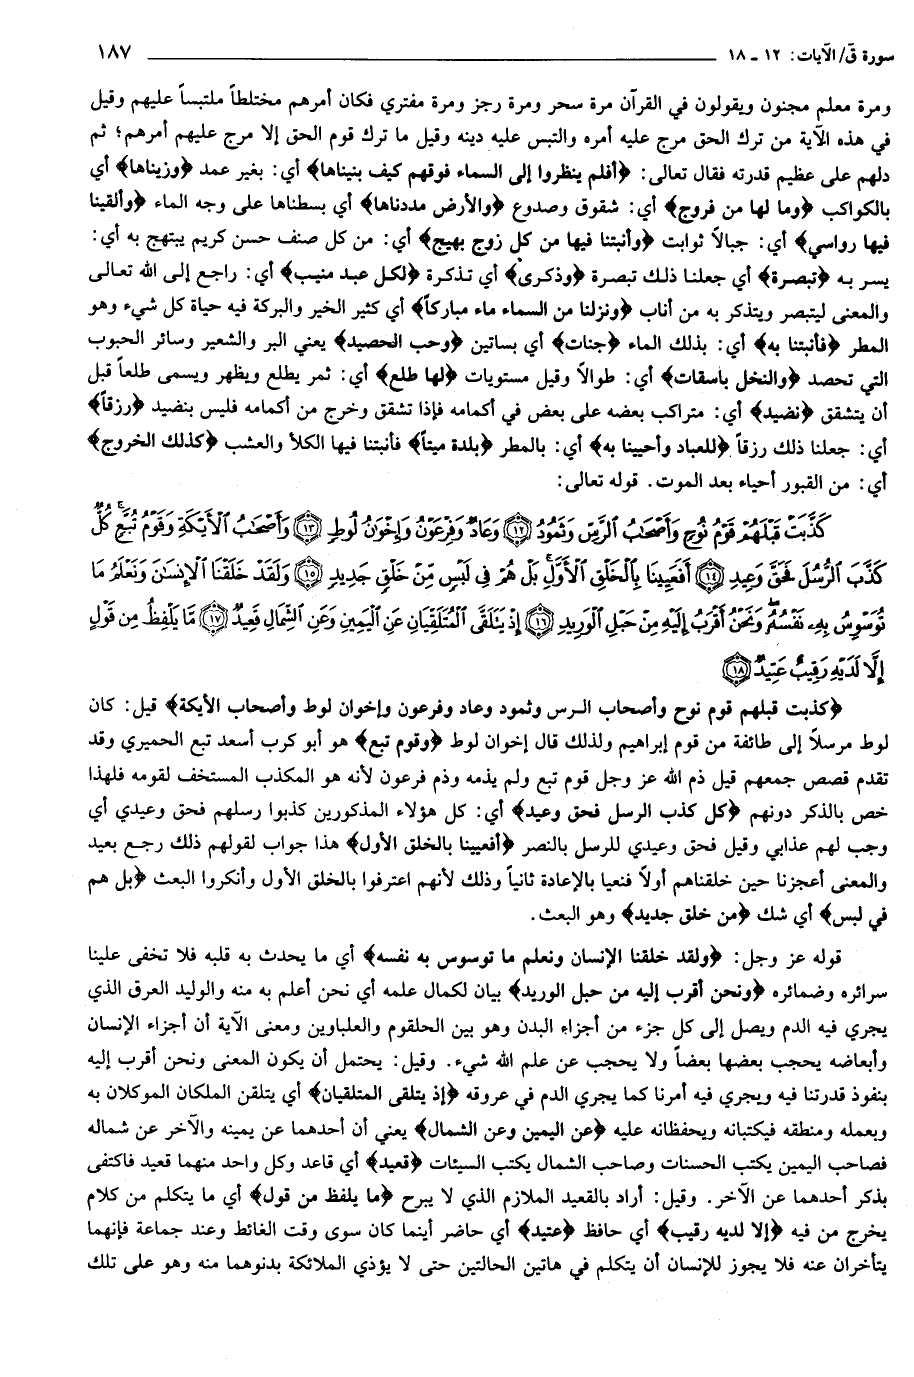 سورة قۤ/ الآيات: ١٢ ـ ١٨ ١٨٧
ومرة معلم مجنون ويقولون في القرآن مرة سحر ومرة رجز ومرة مفتري فكان أمرهم مختلطاً ملتبساً عليهم وقيل
في هذه الآية من ترك الحق مرج عليه أمره والتبس عليه دينه وقيل ما ترك قوم الحق إلا مرج عليهم أمرهم؛ ثم
دلهم على عظيم قدرته فقال تعالى: ﴿أفلم ينظروا إلى السماء فوقهم كيف بنيناها﴾ أي: بغير عمد ﴿وزيناها﴾ أي
بالكواكب ﴿وما لها من فروج﴾ أي: شقوق وصدوع ﴿والأرض مددناها﴾ أي بسطناها على وجه الماء ﴿وألقينا
فيها رواسي﴾ أي: جبالاً ثوابت ﴿وأنبتنا فيها من كل زوج بهيج﴾ أي: من كل صنف حسن كريم يبتهج به أي:
يسر به ﴿تبصرة﴾ أي جعلنا ذلك تبصرة ﴿وذكرى﴾ أي تذكرة ﴿لكل عبد منيب﴾ أي: راجع إلى الله تعالى
والمعنى ليتبصر ويتذكر به من أناب ﴿ونزلنا من السماء ماء مباركاً﴾ أي كثير الخير والبركة فيه حياة كل شيء وهو
المطر ﴿فأنبتنا به﴾ أي: بذلك الماء ﴿جنات﴾ أي بساتين ﴿وحب الحصيد﴾ يعني البر والشعير وسائر الحبوب
التي تحصد ﴿والنخل باسقات﴾ أي: طوالاً وقيل مستويات ﴿لها طلع﴾ أي: ثمر يطلع ويظهر ويسمى طلعاً قبل
أن يتشقق ﴿نضيد﴾ أي: متراكب بعضه على بعض في أكمامه فإذا تشقق وخرج من أكمامه فليس بنضيد ﴿رزقاً﴾
أي: جعلنا ذلك رزقاً ﴿للعباد وأحيينا به﴾ أي: بالمطر ﴿بلدة ميتاً﴾ فأنبتنا فيها الكلأ والعشب ﴿كذلك الخروج﴾
أي: من القبور أحياء بعد الموت. قوله تعالى:
كَذَّبَتْ قَبْلَهُمْ قَوْمُ نُوحٍ وَأَصْحَابُ الرَّسِّ وَثَمُودُ ﴿١٢﴾ وَعَادٌ وَفِرْعَوْنُ وَإِخْوَانُ لُوطٍ ﴿١٣﴾ وَأَصْحَابُ الْأَيْكَةِ وَقَوْمُ تُبَّعٍ كُلٌّ
كَذَّبَ الرُّسُلَ فَحَقَّ وَعِيدِ ﴿١٤﴾ أَفَعَيِينَا بِالْخَلْقِ الْأَوَّلِ بَلْ هُمْ فِي لَبْسٍ مِّنْ خَلْقٍ جَدِيدٍ ﴿١٥﴾ وَلَقَدْ خَلَقْنَا الْإِنسَانَ وَنَعْلَمُ مَا
تُوَسْوِسُ بِهِ نَفْسُهُ وَنَحْنُ أَقْرَبُ إِلَيْهِ مِنْ حَبْلِ الْوَرِيدِ ﴿١٦﴾ إِذْ يَتَلَقَّى الْمُتَلَقِّيَانِ عَنِ الْيَمِينِ وَعَنِ الشِّمَالِ قَعِيدٌ ﴿١٧﴾ مَّا يَلْفِظُ مِن قَوْلٍ
إِلَّا لَدَيْهِ رَقِيبٌ عَتِيدٌ ﴿١٨﴾
﴿كذبت قبلهم قوم نوح وأصحاب الرس وثمود وعاد وفرعون وإخوان لوط وأصحاب الأيكة﴾ قيل: كان
لوط مرسلاً إلى طائفة من قوم إبراهيم ولذلك قال إخوان لوط ﴿وقوم تبع﴾ هو أبو كرب أسعد تبع الحميري وقد
تقدم قصص جمعهم قيل ذم الله عز وجل قوم تبع ولم يذمه وذم فرعون لأنه هو المكذب المستخف لقومه فلهذا
خص بالذكر دونهم ﴿كل كذب الرسل فحق وعيد﴾ أي: كل هؤلاء المذكورين كذبوا رسلهم فحق وعيدي أي
وجب لهم عذابي وقيل فحق وعيدي للرسل بالنصر ﴿أفعيينا بالخلق الأول﴾ هذا جواب لقولهم ذلك رجع بعيد
والمعنى أعجزنا حين خلقناهم أولاً فنعيا بالإعادة ثانياً وذلك لأنهم اعترفوا بالخلق الأول وأنكروا البعث ﴿بل هم
في لبس﴾ أي شك ﴿من خلق جديد﴾ وهو البعث.
قوله عز وجل: ﴿ولقد خلقنا الإنسان ونعلم ما توسوس به نفسه﴾ أي ما يحدث به قلبه فلا تخفى علينا
سرائره وضمائره ﴿ونحن أقرب إليه من حبل الوريد﴾ بيان لكمال علمه أي نحن أعلم به منه والوليد العرق الذي
يجري فيه الدم ويصل إلى كل جزء من أجزاء البدن وهو بين الحلقوم والعلباوين ومعنى الآية أن أجزاء الإنسان
وأبعاضه يحجب بعضها بعضاً ولا يحجب عن علم الله شيء. وقيل: يحتمل أن يكون المعنى ونحن أقرب إليه
بنفوذ قدرتنا فيه ويجري فيه أمرنا كما يجري الدم في عروقه ﴿إذ يتلقى المتلقيان﴾ أي يتلقن الملكان الموكلان به
وبعمله ومنطقه فيكتبانه ويحفظانه عليه ﴿عن اليمين وعن الشمال﴾ يعني أن أحدهما عن يمينه والآخر عن شماله
فصاحب اليمين يكتب الحسنات وصاحب الشمال يكتب السيئات ﴿قعيد﴾ أي قاعد وكل واحد منهما قعيد فاكتفى
بذكر أحدهما عن الآخر. وقيل: أراد بالقعيد الملازم الذي لا يبرح ﴿ما يلفظ من قول﴾ أي ما يتكلم من كلام
يخرج من فيه ﴿إلا لديه رقيب﴾ أي حافظ ﴿عتيد﴾ أي حاضر أينما كان سوى وقت الغائط وعند جماعة فإنهما
يتأخران عنه فلا يجوز للإنسان أن يتكلم في هاتين الحالتين حتى لا يؤذي الملائكة بدنوهما منه وهو على تلك